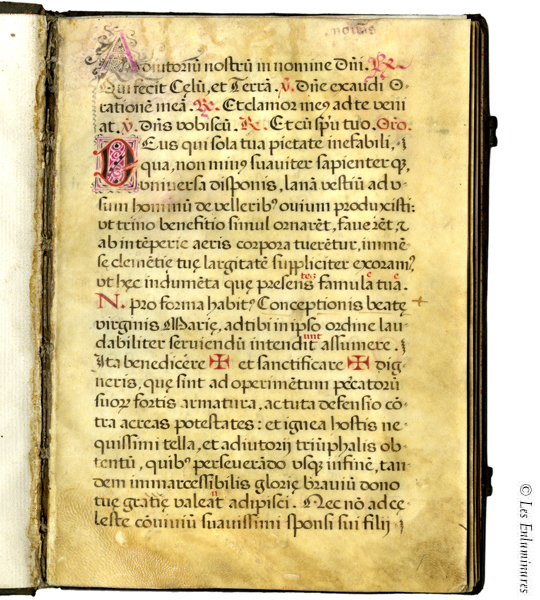 nouiciis
Adiutoriū nostrū in nomine Dn̄i. ℟.
Qui fecit Cęlū, et Terrā. ℣. Dn̄e exaudi O⸗
rationē meā. ℟. Et clamor meꝰ ad te veni
at. ℣. Dn̄s vobiscū. ℟. Et cū sp̄u tuo. Or̄o.
DEus qui sola tua pietate inefabili,
qua, non minꝰ suauiter sapienter qꝫ,
vniuersa disponis, lanā vestiū ad v⸗
sum hominū de velleribꝰ ouium produxisti:
vt trino benefitio simul ornarēt, fauerēt, ⁊
ab intēperie aeris corpora tuerētur, immē⸗
sę clemētię tuę largitatē suppliciter exoramꝰ,
vt hęc indumēta quę presens famula tuā.
tes ę ę
N. pro forma habitꝰ Conceptionis beatę +
virginis Marię, ad tibi in ipso ordine lau⸗
dabiliter seruiendū intendit assumere.
unt
Ita benedicere ✠ et sanctificare ✠ dig⸗
neris, quę sint ad operimētum pēcatorū
suoꝝ fortis armatura, ac tuta defensio cō⸗
tra aereas potestates: et ignea hostis ne⸗
quissimi tella, et adiutorij triūphalis ob⸗
tentū, quibꝰ perseuerādo vsqꝫ in finē, tan⸗
dem immarcessibilis glorię brauiū dono
tuę gratię valeat adipisci. Nec nō ad cę⸗
n
leste cōuiuiū suauissimi sponsi sui filij
© Les Enluminures